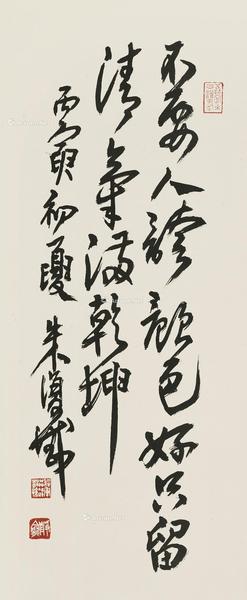 不要人誇顏色好只留
清氣滿乾坤
丙寅初夏 朱復戡